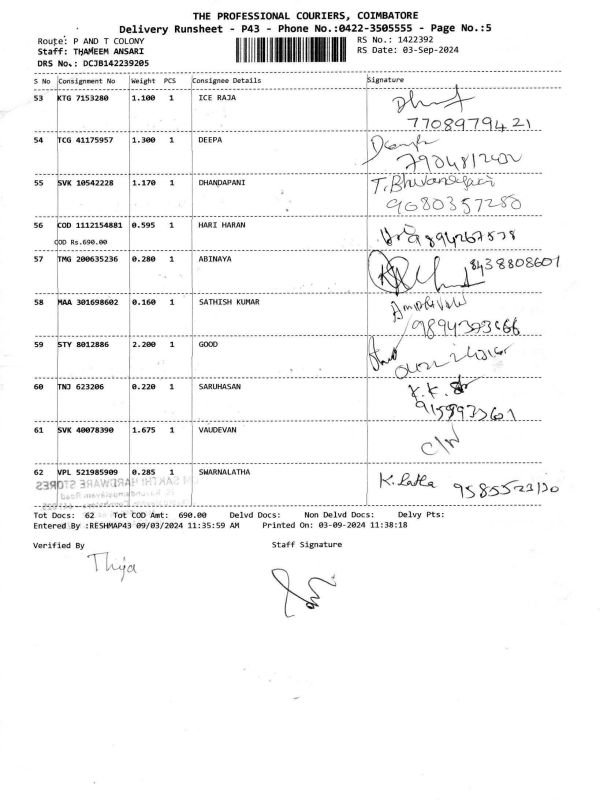 THE PROFESSIONAL COURIERS, COIMBATORE
Delivery Runsheet - P43 - Phone No.:0422-3505555 - Page No.:5
Route: P AND T COLONY RS No.: 1422392
Staff: THAMEEM ANSARI RS Date: 03-Sep-2024
DRS No.: DCJB142239205
S No Consignment No Weight PCS Consignee Details Signature
53 KTG 7153280 1.100 1 ICE RAJA
7708979421
54 TCG 41175957 1.300 1 DEEPA
55 SVK 10542228 1.170 1 DHANDAPANI T. Bhuvaneswari
9080357280
56 COD 1112154881 0.595 1 HARI HARAN
COD Rs.690.00
57 TMG 200635236 0.280 1 ABINAYA 8438808601
58 MAA 301698602 0.160 1 SATHISH KUMAR
59 STY 8012886 2.200 1 GOOD
60 TNJ 623206 0.220 1 SARUHASAN K.K.
61 SVK 40078390 1.675 1 VAUDEVAN C/W
62 VPL 521985909 0.285 1 SWARNALATHA K. Latha
SAKTHI HARDWARE STORES
Tot Docs: 62 Tot COD Amt: 690.00 Delvd Docs: Non Delvd Docs: Delvy Pts:
Entered By :RESHMAP43 09/03/2024 11:35:59 AM Printed On: 03-09-2024 11:38:18
Verified By Staff Signature